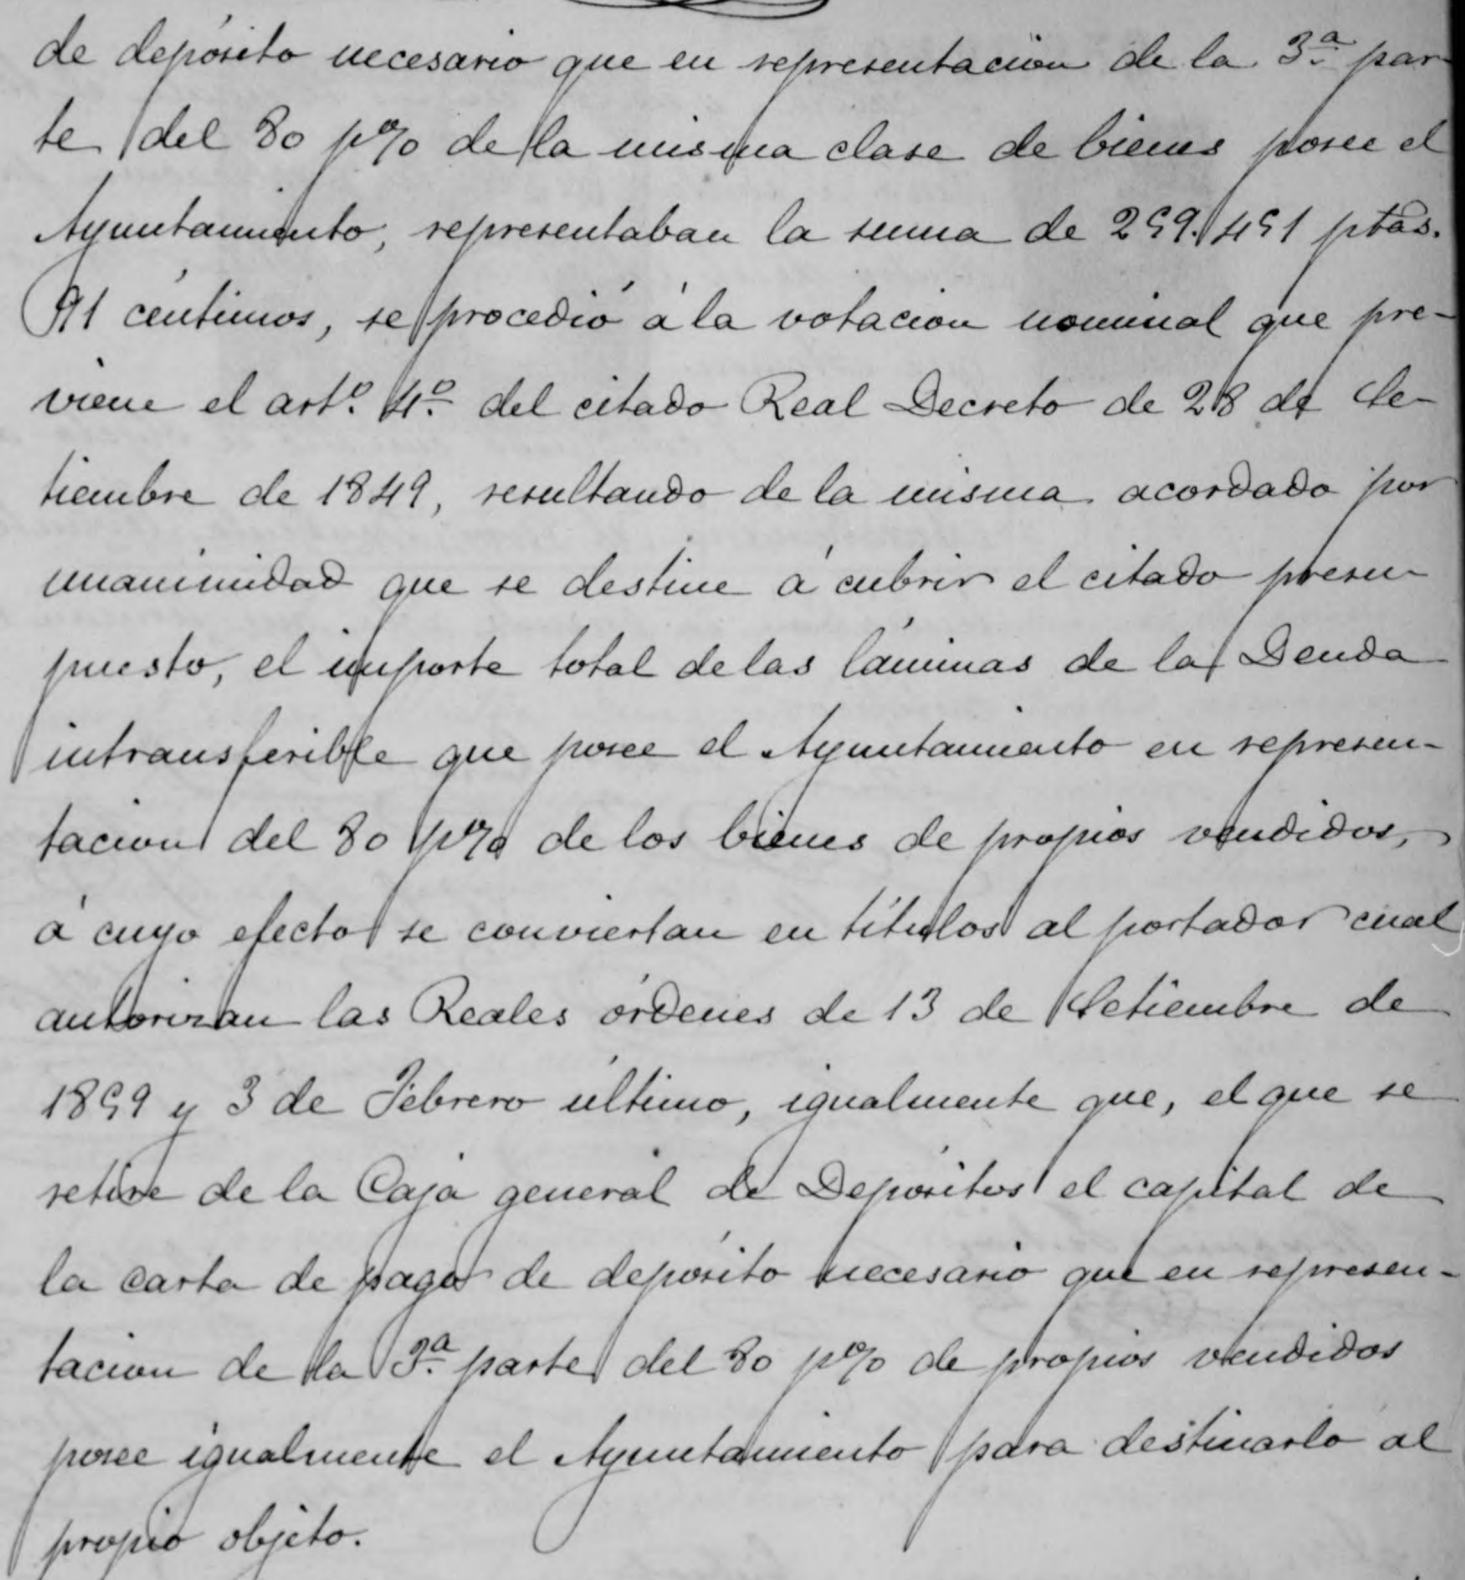 de depósito necesario que en representacion de la 3.ª par-
te del 80 p% de la misma clase de bienes posee el
Ayuntamiento, representaban la suma de 299.491 ptas.
91 céntimos, se procedió á la votacion nominal que pre-
viene el art.º 4.º del citado Real Decreto de 28 de Se-
tiembre de 1849, resultando de la misma acordado por
unanimidad que se destine á cubrir el citado presu-
puesto, el importe total de las láminas de la Deuda
intransferible que posee el Ayuntamiento en represen-
tacion del 80 p% de los bienes de propios vendidos,
á cuyo efecto se conviertan en títulos al portador cual
autorizan las Reales órdenes de 13 de Setiembre de
1899 y 3 de Febrero último, igualmente que, el que se
retire de la Caja general de Depósitos el capital de
la carta de pago de depósito necesario que en represen-
tacion de la 3.ª parte del 80 p% de propios vendidos
posee igualmente el Ayuntamiento para destinarlo al
propio objeto.